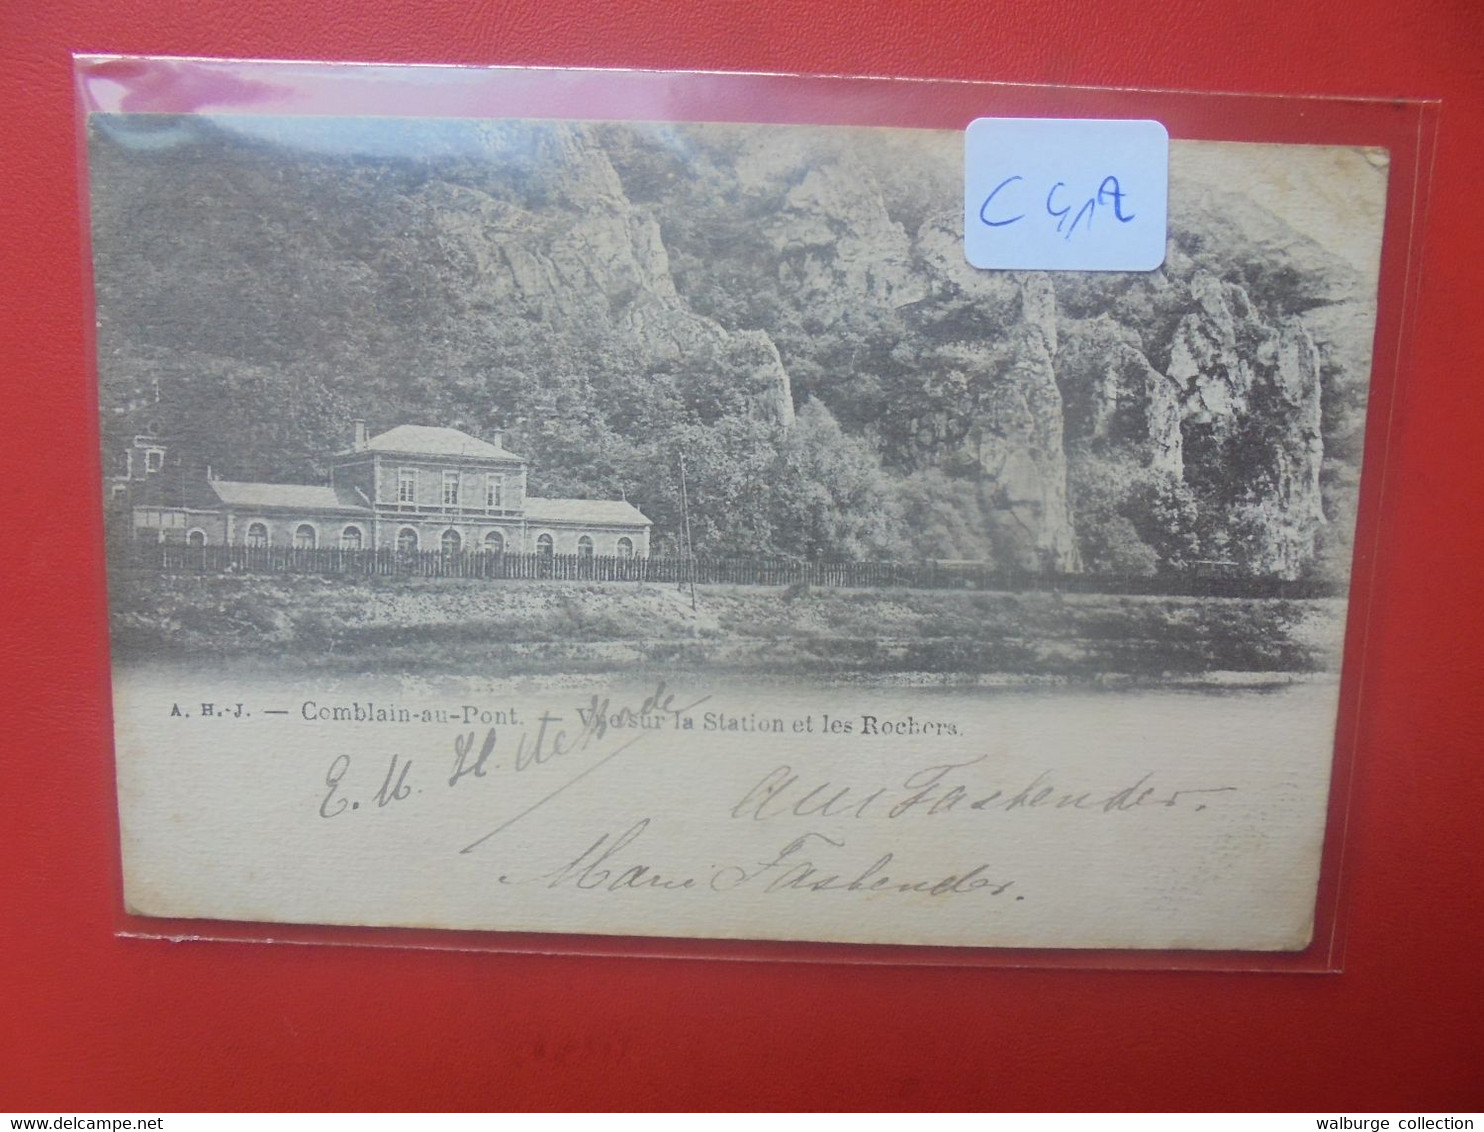 A. H.-J. — Comblain-au-Pont. — Vue sur la Station et les Rochers.
E. M. H.
Fastender.
Marie Fastender.
www.delcampe.net
walburge collection